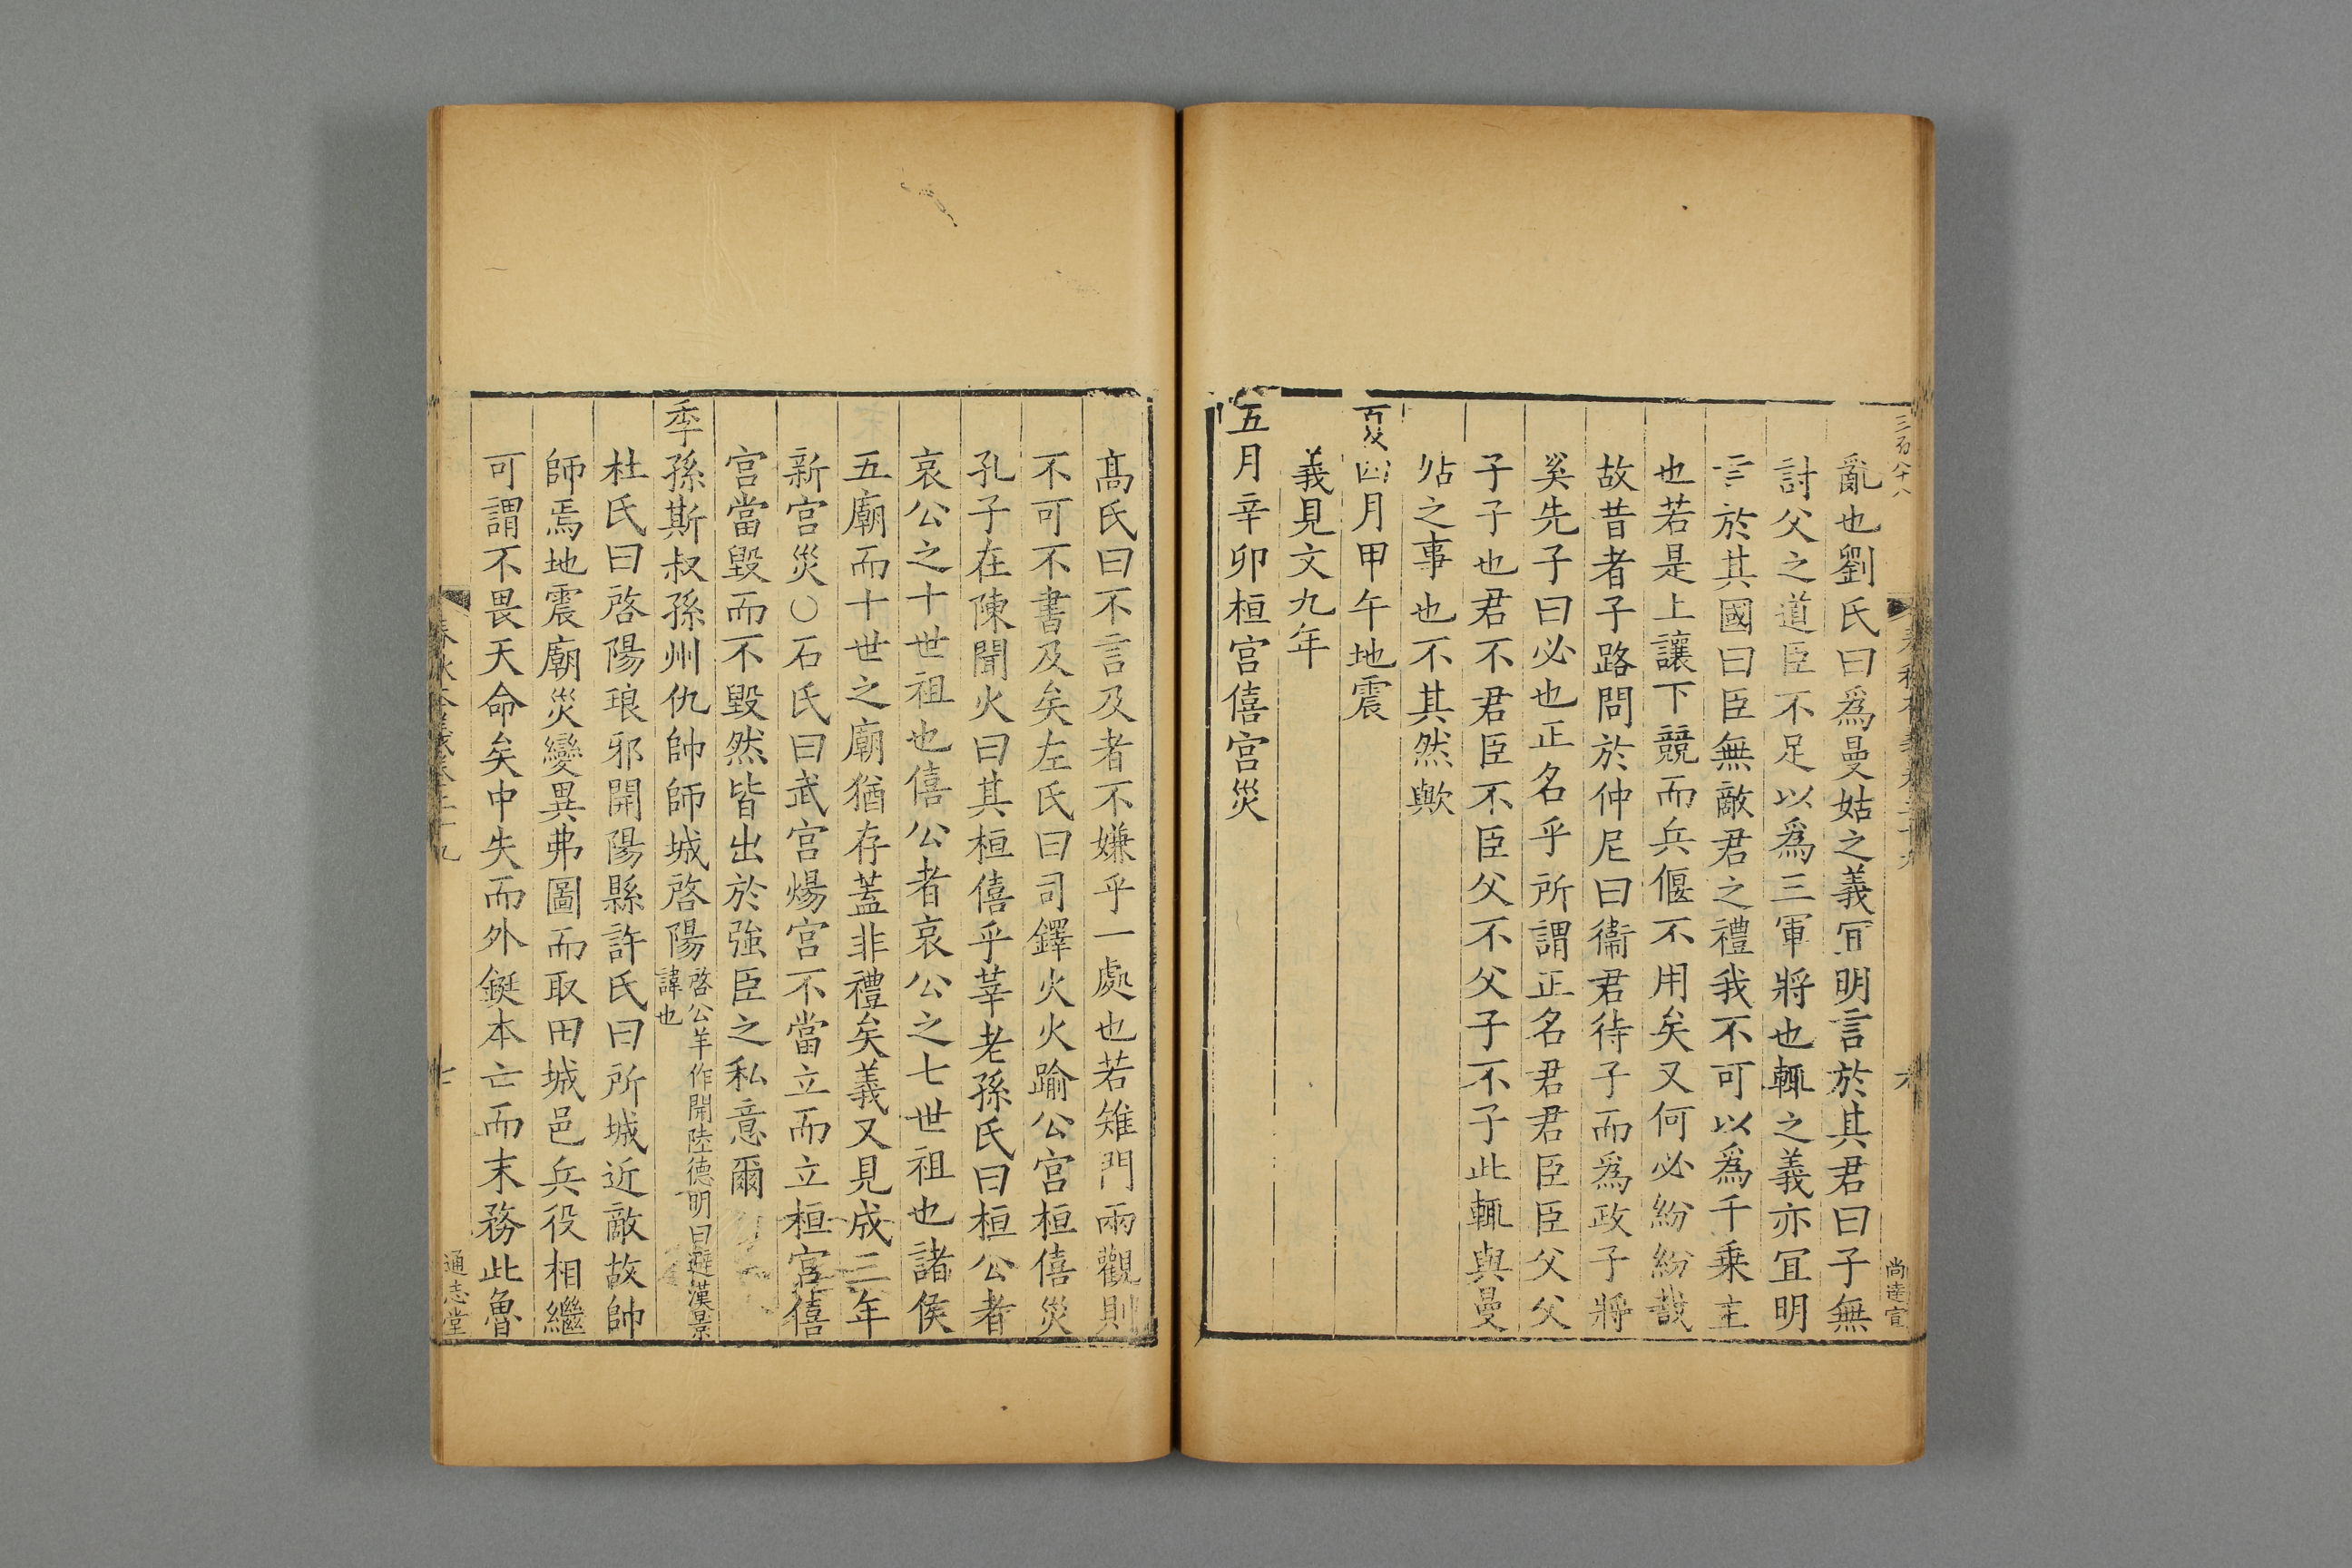 三百八十八
亂也劉氏曰爲曼姑之義冝明言於其君曰子無
討父之道臣不足以爲三軍將也輒之義亦冝明
言於其國曰臣無敵君之禮我不可以爲千乗主
也若是上讓下競而兵偃不用矣又何必紛紛哉
故昔者子路問於仲尼曰衞君待子而爲政子將
奚先子曰必也正名乎所謂正名君君臣臣父父
子子也君不君臣不臣父不父子不子此輒與曼
姑之事也不其然歟
夏四月甲午地震
義見文九年
五月辛卯桓宫僖宫災
春秋本義卷二十九
六
尚逵宣
髙氏曰不言及者不嫌乎一處也若雉門兩觀則
不可不書及矣左氏曰司鐸火火踰公宫桓僖災
孔子在陳聞火曰其桓僖乎莘老孫氏曰桓公者
哀公之十世祖也僖公者哀公之七世祖也諸侯
五廟而十世之廟猶存蓋非禮矣義又見成三年
新宫災○石氏曰武宫煬宫不當立而立桓宫僖
宫當毀而不毀然皆出於強臣之私意爾
季孫斯叔孫州仇帥師城啓陽啓公羊作開陸德明曰避漢景
諱也
杜氏曰啓陽琅邪開陽縣許氏曰所城近敵故帥
師焉地震廟災變異弗圖而取田城邑兵役相繼
可謂不畏天命矣中失而外鋌本亡而末務此魯
春秋本義卷二十九
七
通志堂